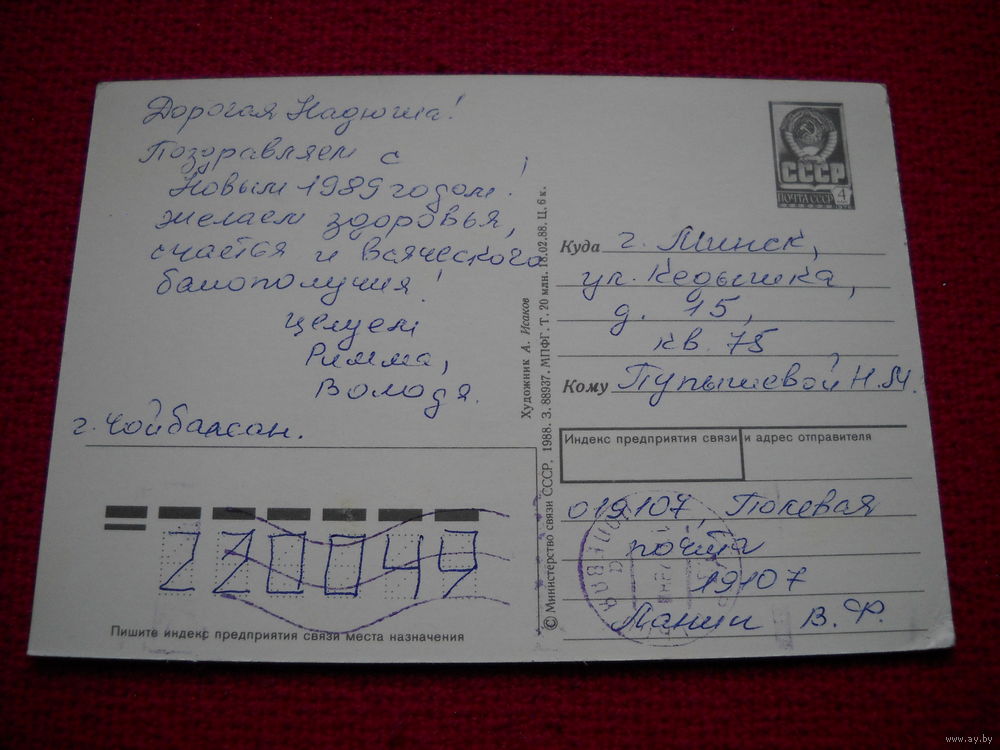 Дорогая Надюша!
Поздравляем с
Новым 1989 годом!
желаем здоровья,
счастья и всяческого
благополучия!
Целуем
Римма,
Володя.
г. Чойбалсан.
Пишите индекс предприятия связи места назначения
© Министерство связи СССР, 1988. З. 88937. МПФГ. Т. 20 млн. 18.02.88. Ц. 6 к.
Художник А. Исаков
СССР
ПОЧТА СССР 4
Куда г. Минск,
ул. Кедышка,
д. 15,
кв. 75
Кому Пупышевой Н.М.
Индекс предприятия связи и адрес отправителя
019107, Полевая
почта
19107
В. Ф.
www.ay.by